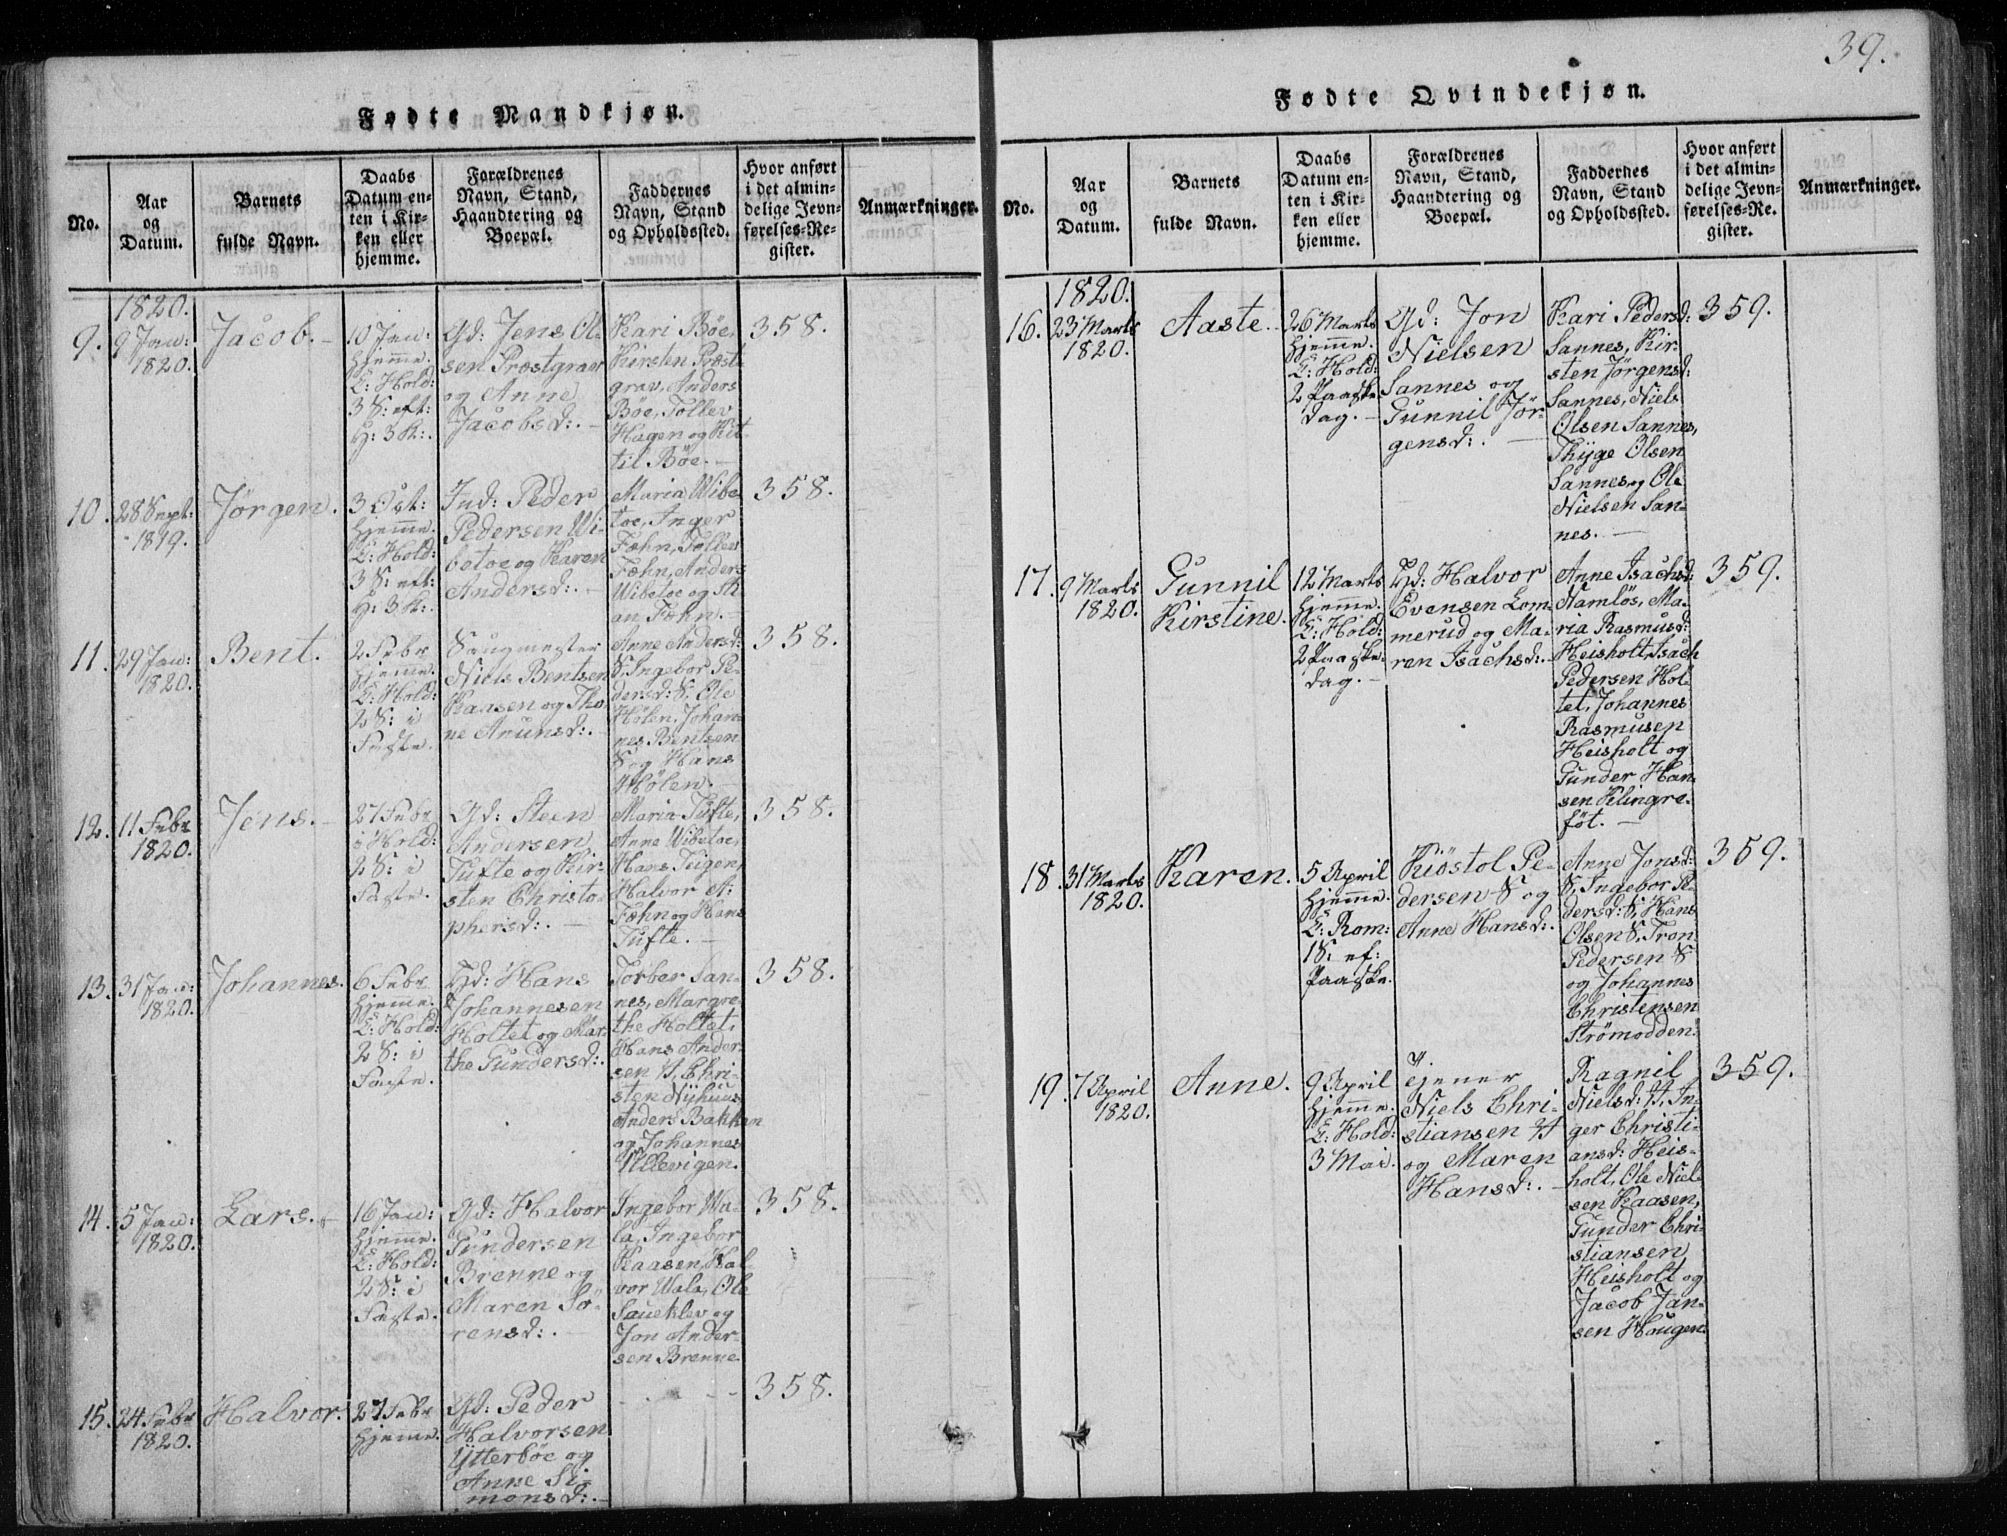 39.
Fødte Mandkjøn.
No.
Aar
og
Datum.
Barnets
fulde Navn.
Daabs
Datum en-
ten i Kir-
ken eller
hjemme.
Forældrenes
Navn, Stand,
Haandtering og
Boepæl.
Faddernes
Navn, Stand
og Opholdssted.
Hvor anført
i det almin-
delige Jevn-
førelses-Re-
gister.
Anmærkninger.
1820.
9.
9 Jan:
1820.
Jacob.
10 Jan:
hjemme.
E: Hold:
3 S: eft:
H: 3 K:.
Gd: Jens Ol-
sen Præstgrav
og Anne
Jacobsd:.
Kari Böe,
Kirsten Præst-
grav, Anders
Böe, Tollev
Hagen og Kit-
til Böe.
358.
10.
28 Sept:
1819.
Jörgen.
3 Oct:
hjemme.
E: Hold:
3 S: eft:
H: 3 K:.
Ind: Peder
Pedersen Wi-
betoe og Karen
Andersd:.
Maria Wibe-
toe, Inger
Fæhn, Tollev
Fæhn, Anders
Wibetoe og
an Fæhn.
358.
11.
29 Jan:
1820.
Bent.
2 Febr
hjemme.
E: Hold:
2 S: i
Faste.
Saugmester
Niels Bentsen
Kaasen og Tho-
ne Anunsd:.
Anne Andersd:
S, Ingebor Pe-
dersd: S, Ole
Hölen, Johan-
nes Bentsen
S og Hans
Hölen.
358.
12.
11 Febr
1820.
Jens.
27 Febr
i Hold:
2 S: i
Faste.
Gd: Steen
Andersen
Tufte og Kir-
sten Christo-
phersd:.
Maria Tufte,
Anne Wibetoe,
Hans Teigen,
Halvor A:
Fæhn og Hans
Tufte.
358.
13.
31 Jan:
1820.
Johannes.
6 Febr
hjemme.
E: Hold:
2 S: i
Faste.
Gd: Hans
Johannesen
Holtet og Mar-
the Gundersd:.
Torber San-
nes, Margre-
the Holtet,
Hans Ander-
sen H, Chri-
sten Nyhuus,
Anders Bakken
og Johannes
Ullevigen.
358.
14.
5 Jan:
1820.
Lars.
16 Jan:
hjemme.
E: Hold:
2 S: i
Faste.
Gd: Halvor
Gundersen
Brenne og
Maren Sö-
rensd:.
Ingebor Wa-
la, Ingebor
Kaasen, Hal-
vor Wala, Ole
Saueklev og
Jon Ander-
sen Brenne.
358.
15.
24 Febr
1820.
Halvor.
27 Febr
hjemme.
Gd: Peder
Halvorsen
Ytterböe og
Anne Si-
monsd:.
358.
Fødte Qvindekjøn.
No.
Aar
og
Datum.
Barnets
fulde Navn.
Daabs
Datum en-
ten i Kir-
ken eller
hjemme.
Forældrenes
Navn, Stand,
Haandtering og
Boepæl.
Faddernes
Navn, Stand
og Opholdssted.
Hvor anført
i det almin-
delige Jevn-
førelses-Re-
gister.
Anmærkninger.
1820.
16.
23 Marts
1820.
Aaste.
26 Marts
hjemme.
E: Hold:
2 Paaske-
dag.
Gd: Jon
Nielsen
Sannes og
Gunnil Jör-
gensd:.
Kari Pedersd:
Sannes, Kir-
sten Jörgensd:
Sannes, Niels
Olsen Sannes,
Thyge Olsen
Sannes og Ole
Nielsen San-
nes.
359.
17.
9 Marts
1820.
Gunnil
Kirstine.
12 Marts
hjemme.
E: Hold:
2 Paaske-
dag.
Gd: Halvor
Evensen Lom-
merud og Ma-
ren Isachsd:.
Anne Isachsd:
Namlös, Ma-
ria Rasmusd:
Heisholt, Isach
Pedersen Hol-
tet, Johannes
Rasmusen
Heisholt og
Gunder Han-
sen Klingre-
föt.
359.
18.
31 Marts
1820.
Karen.
5 April
hjemme.
E: Rom:
1 S: ef:
Paaske.
Kiöstol Pe-
dersen S og
Anne Hansd:.
Anne Jonsd:
S, Ingebor Pe-
dersd: S, Hans
Olsen S, Tron
Pedersen S
og Johannes
Christensen
Strömodden.
359.
19.
7 April
1820.
Anne.
9 April
hjemme.
E: Hold:
3 Mai.
ejener
Niels Chri-
stiansen H
og Maren
Hansd:.
Ragnil
Nielsd: H, In-
ger Christi-
ansd: Heis-
holt, Ole Niel-
sen Kaasen,
Gunder Chri-
stiansen
Heisholt og
Jacob Jan-
sen Haugen.
359.